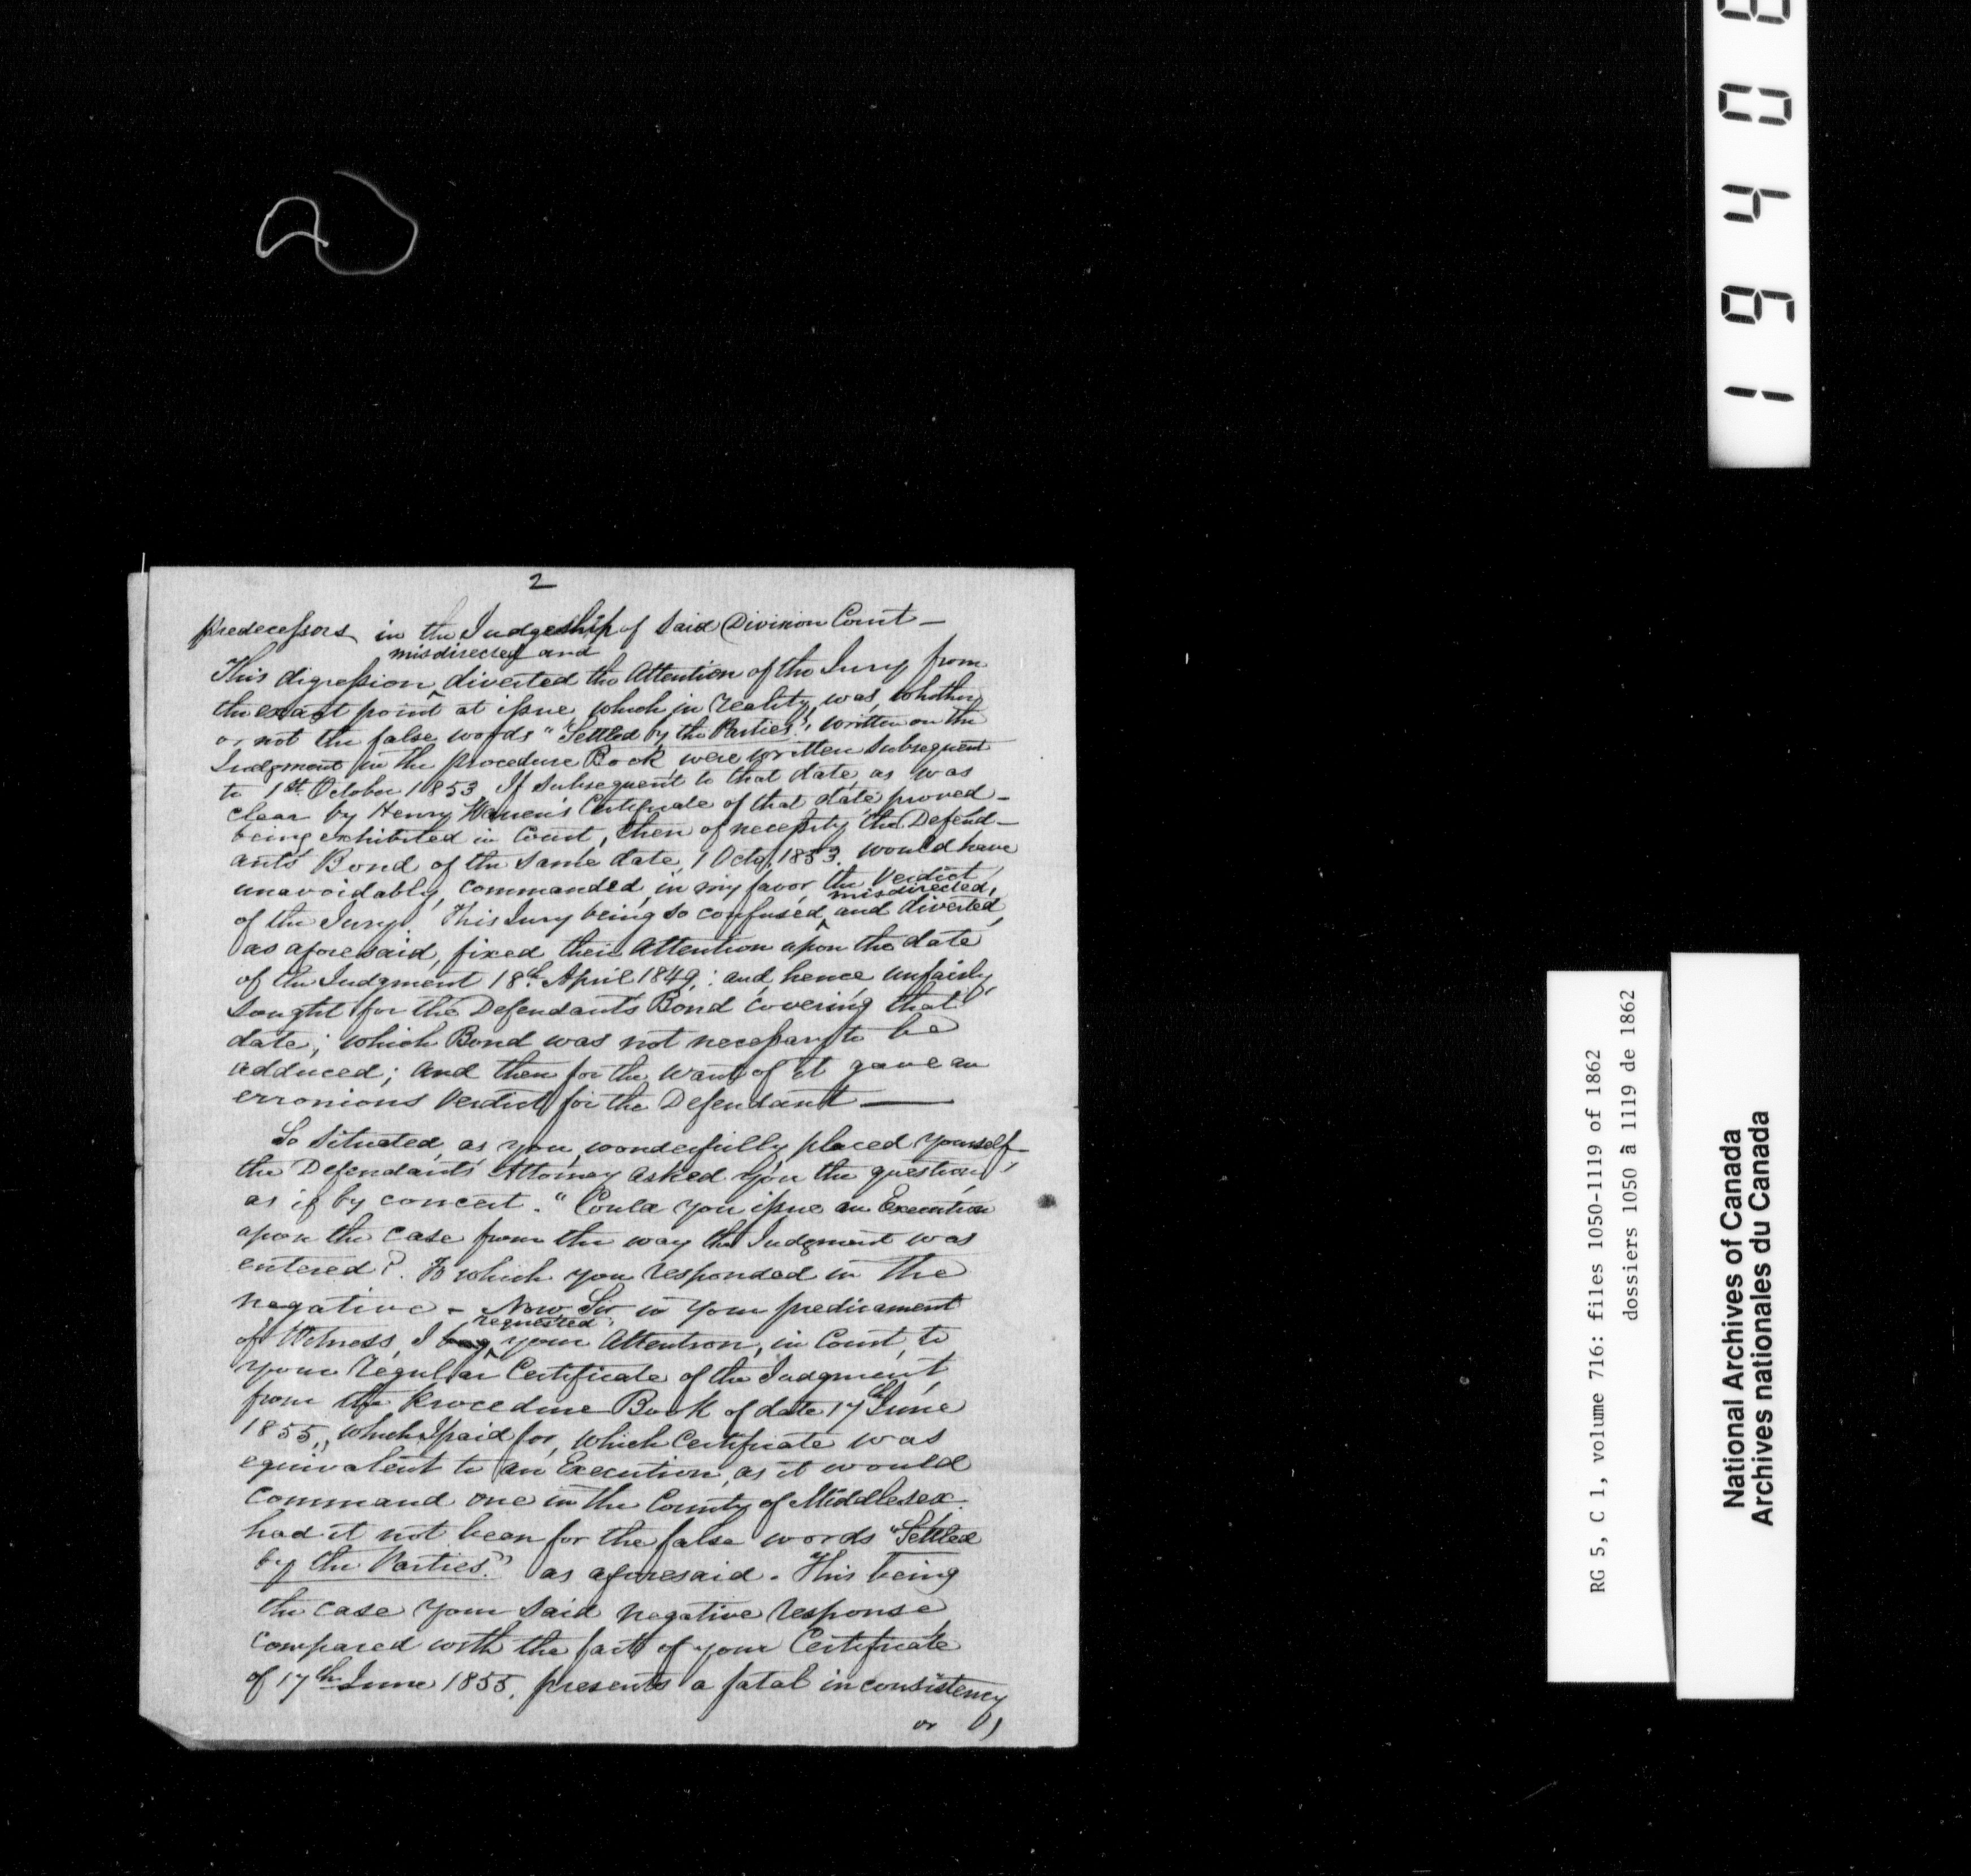 2
predecessors in the Judgeship of said Division Court —
misdirected and
This digression ‸ diverted the Attention of the Jury from
the exact point at issue, which in reality, was, whether
or not the false words "Settled by the Parties", written on the
Judgment in the procedure Book, were written subsequent
to 1st October 1853. If subsequent to that date, as was
clear by Henry Warren's Certificate of that date proved —
being exhibited in Court, then of necessity, the Defend—
ants' Bond of the same date, 1 Octo, 1853. would have
unavoidably, commanded, in my favor, the Verdict,
misdirected,
of the Jury. This Jury being so confused ‸ and diverted,
as aforesaid, fixed, their Attention upon the date
of the Judgment 18th April 1849; and, hence unfairly,
sought for the Defendants' Bond covering that
date; which Bond was not necessary to be
adduced; and then for the want of it gave an
erronious Verdict for the Defendant —
So situated, as you, wonderfully, placed yourself—
the Defendants' Attorney asked you the question,
as if by concert. "Could you issue an Execution
upon the case from the way the Judgment was
entered?. To which you responded in the
negative — Now Sir in your predicament
requested,
of Witness, I beg ‸ your Attention, in Court, to
your regular Certificate of the Judgment,
from the Procedure Book of date 17th June
1855,, which I paid for, which Certificate was
equivalent to an Execution, as it would
command one in the County of Middlesex.
had it not been for the false words "Settled
by the Parties." as aforesaid. This being
the case your said negative response
compared with the fact of your Certificate
of 17th June 1855, presents a fatal inconsistency
or
1 9 4 0
RG 5, C 1, volume 716: files 1050-1119 of 1862
dossiers 1050 à 1119 de 1862
National Archives of Canada
Archives nationales du Canada